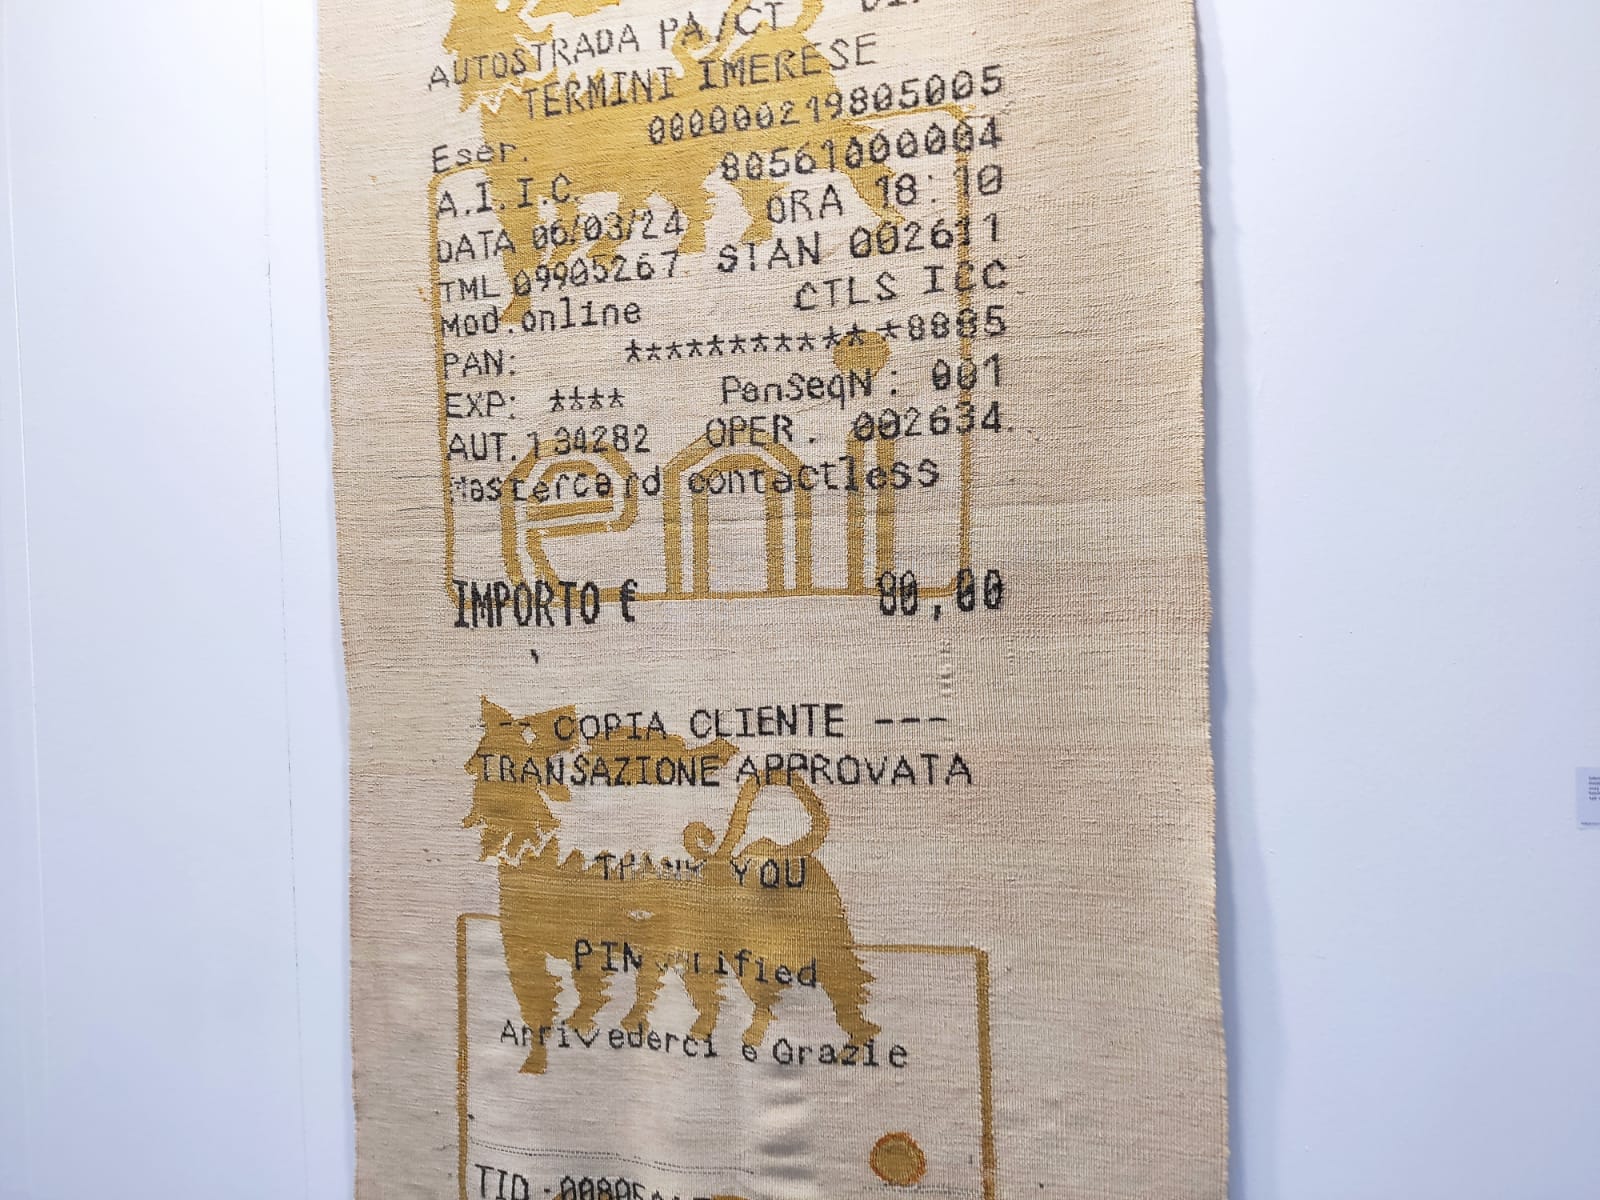 AUTOSTRADA PA/CT
TERMINI IMERESE
Eser. 000000219805005
A.I.I.C. 80561000004
DATA 06/03/24 ORA 18:10
TML 09905267 STAN 002611
Mod.online CTLS ICC
PAN: ************8885
EXP: **** PanSeqN: 001
AUT.134282 OPER. 002634
Mastercard contactless
eni
IMPORTO € 80,00
-- COPIA CLIENTE ---
TRANSAZIONE APPROVATA
THANK YOU
PIN Verified
Arrivederci e Grazie